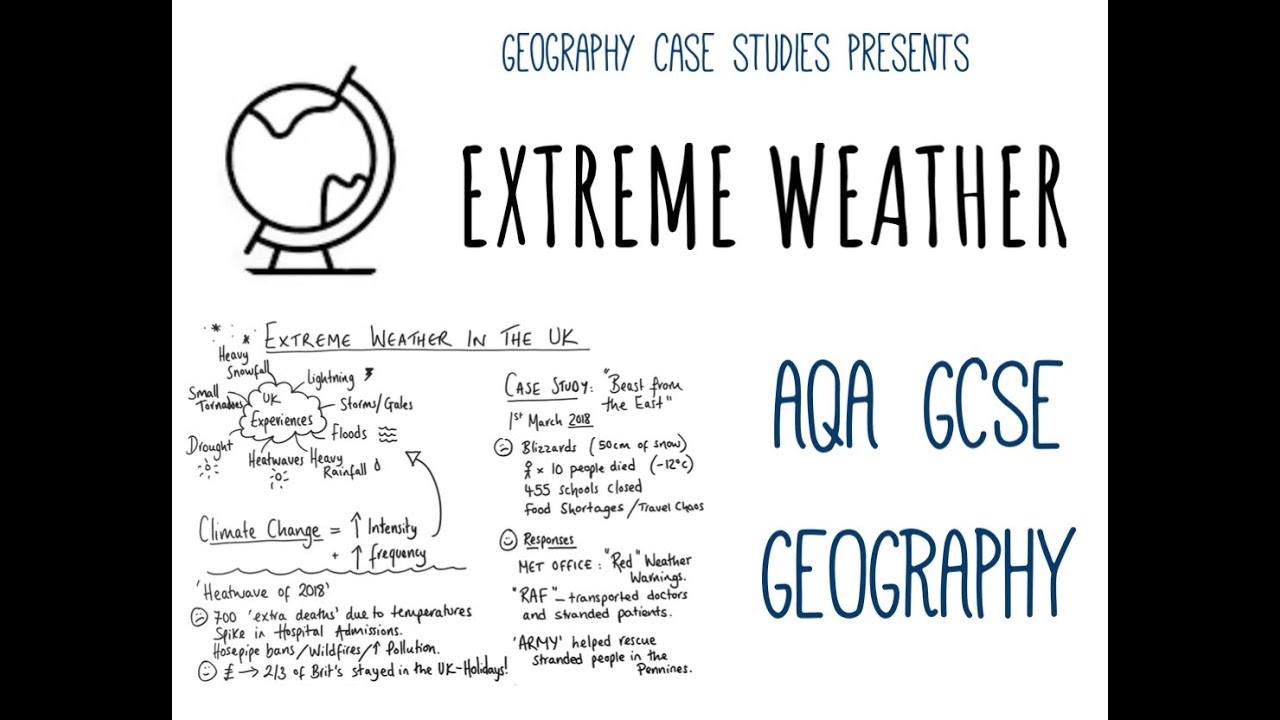 GEOGRAPHY CASE STUDIES PRESENTS
EXTREME WEATHER
AQA GCSE
GEOGRAPHY
EXTREME WEATHER IN THE UK
Heavy
Snowfall
Lightning
Small
Tornadoes
UK
Experiences
Storms/Gales
Floods
Drought
Heatwaves
Heavy
Rainfall
Climate Change = ↑ Intensity
+ ↑ frequency
'Heatwave of 2018'
700 'extra deaths' due to temperatures
Spike in Hospital Admissions.
Hosepipe bans/Wildfires/↑ Pollution.
£ → 2/3 of Brit's stayed in the UK-Holidays!
CASE STUDY: "Beast from
the East"
1st March 2018
Blizzards (50cm of snow)
x 10 people died (-12°c)
455 schools closed
Food Shortages/Travel Chaos
Responses
MET OFFICE: "Red" Weather
Warnings.
"RAF" – transported doctors
and stranded patients.
'ARMY' helped rescue
stranded people in the
Pennines.